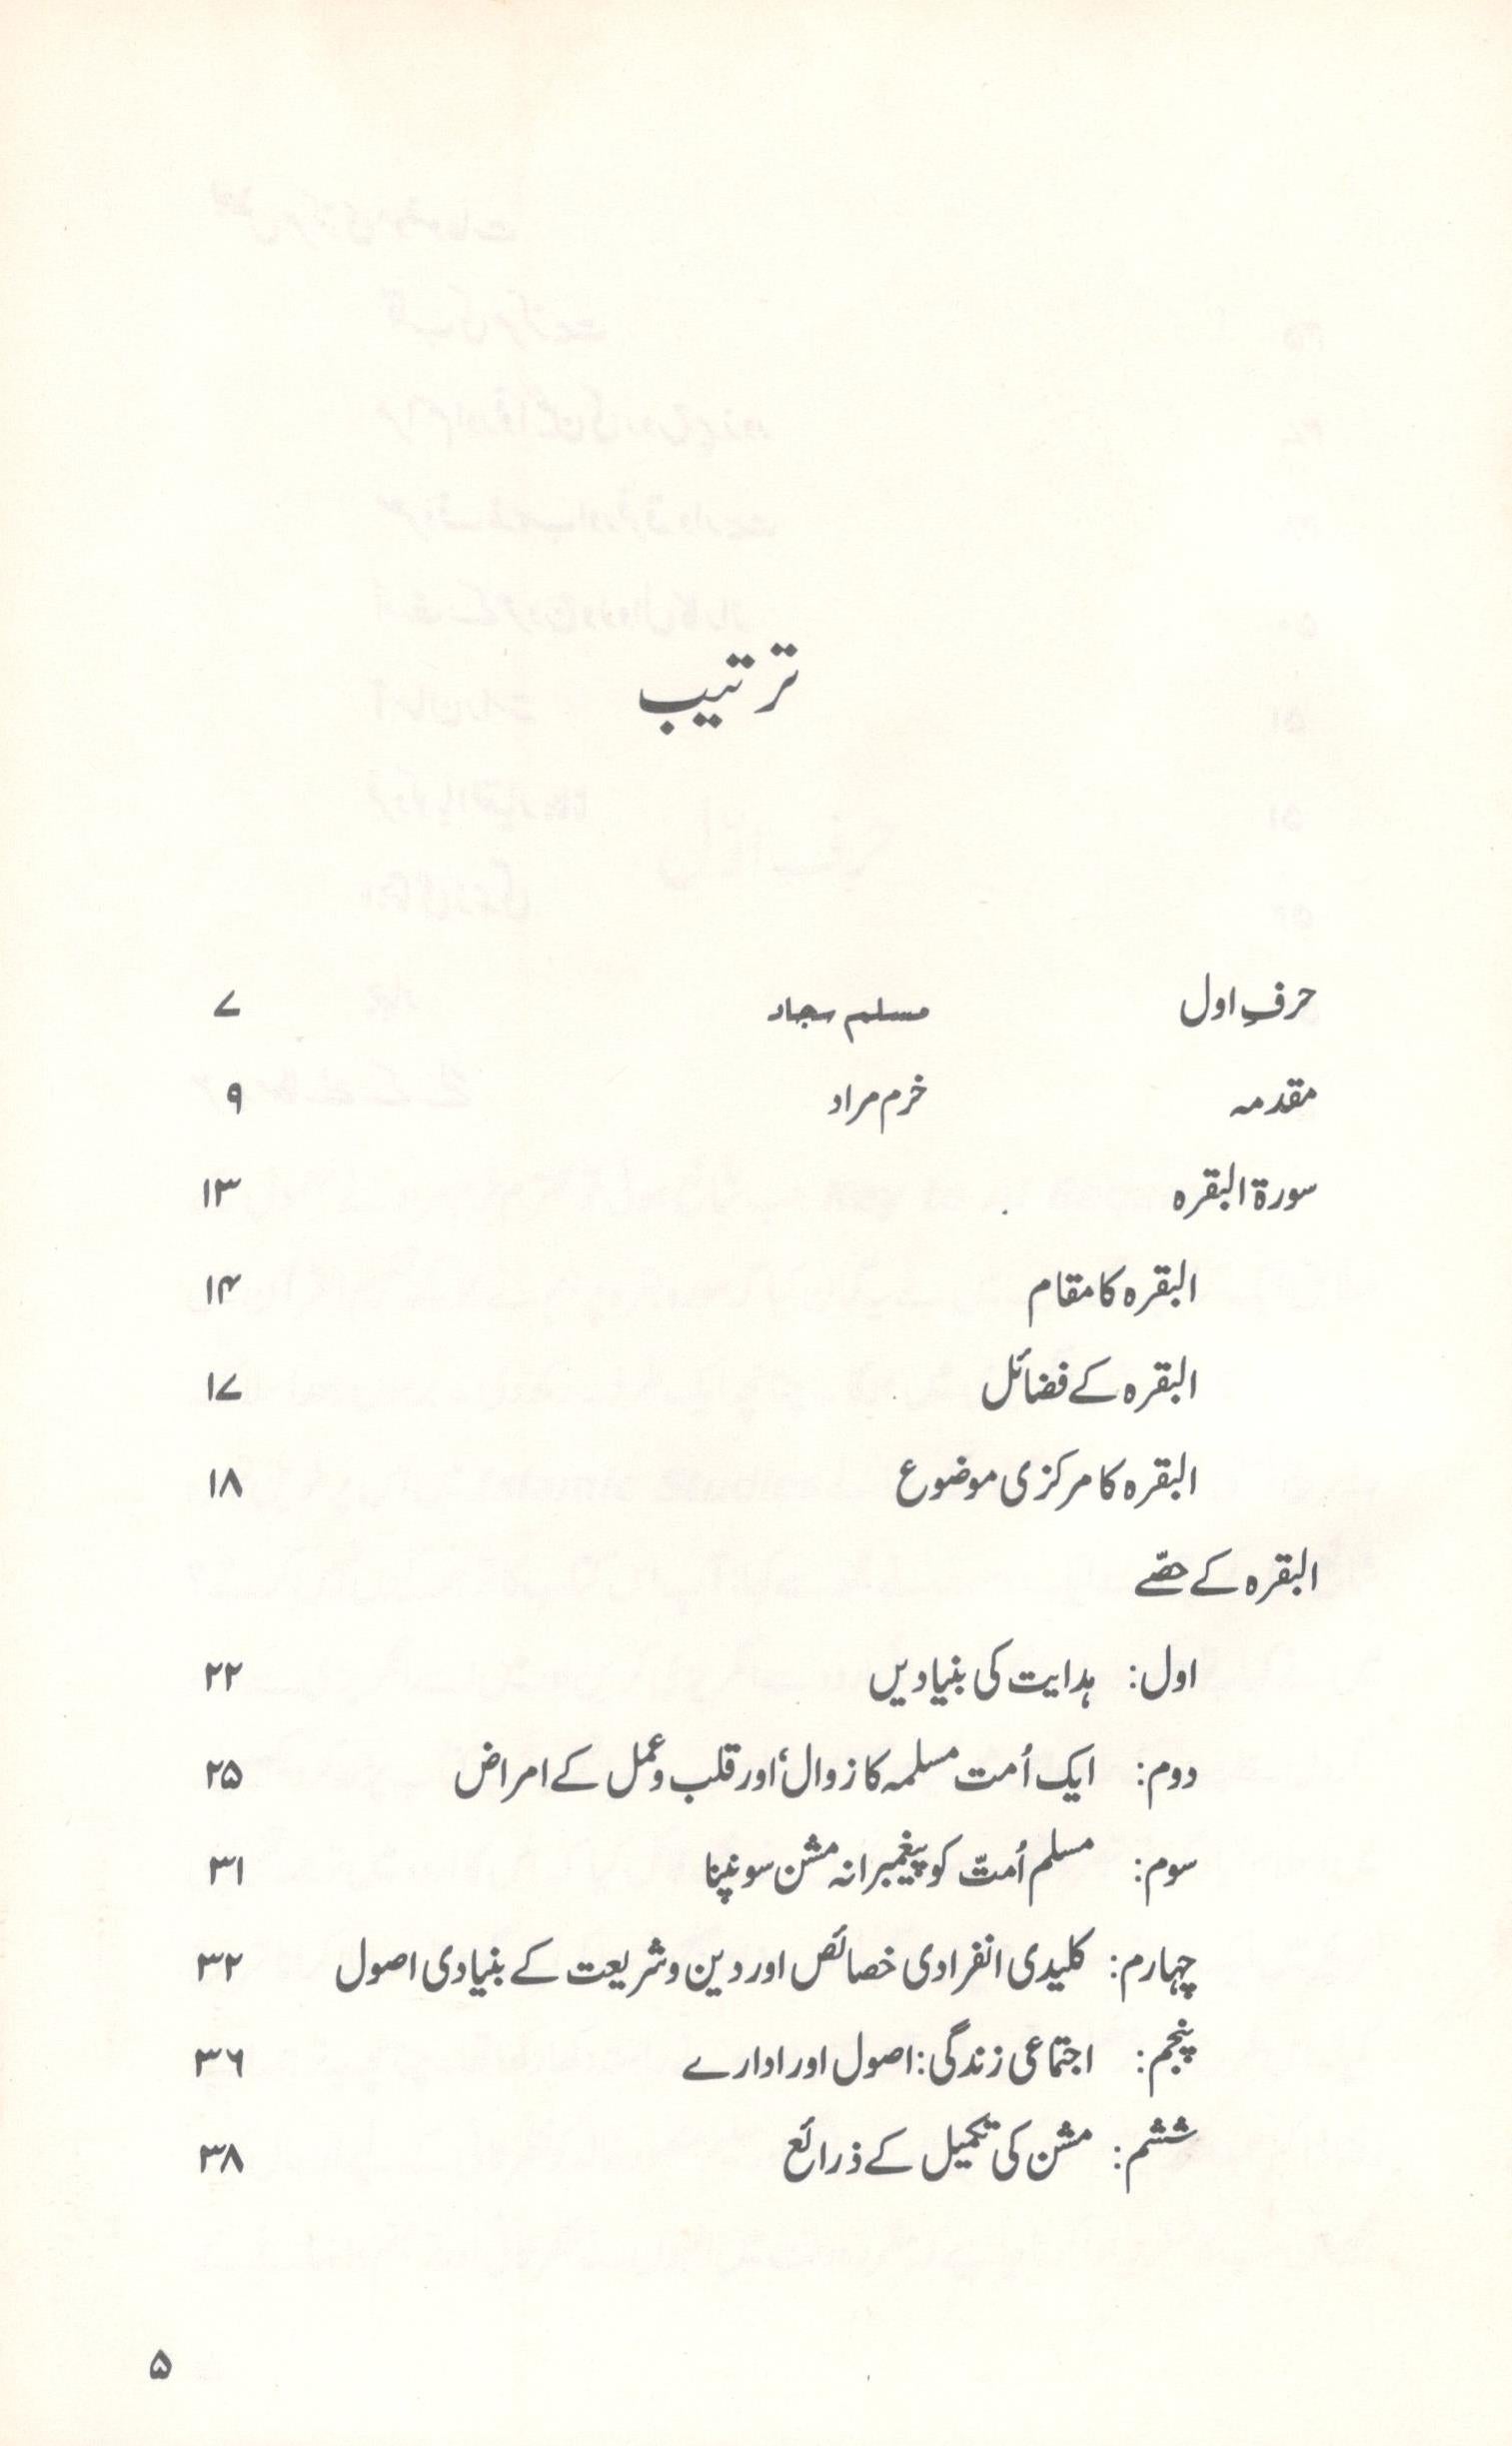 ترتیب
حرفِ اول مسلم سجاد ۷
مقدمہ خرم مراد ۹
سورۃ البقرہ ۱۳
البقرہ کا مقام ۱۴
البقرہ کے فضائل ۱۷
البقرہ کا مرکزی موضوع ۱۸
البقرہ کے حصّے
اول: ہدایت کی بنیادیں ۲۲
دوم: ایک اُمت مسلمہ کا زوال‘ اور قلب و عمل کے امراض ۲۵
سوم: مسلم اُمتّ کو پیغمبرانہ مشن سونپنا ۳۱
چہارم: کلیدی انفرادی خصائص اور دین و شریعت کے بنیادی اصول ۳۲
پنجم: اجتماعی زندگی: اصول اور ادارے ۳۶
ششم: مشن کی تکمیل کے ذرائع ۳۸
۵